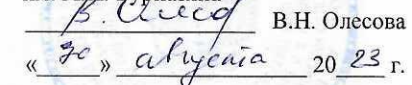 В. Олесов В.Н. Олесова
«30» августа 2023 г.